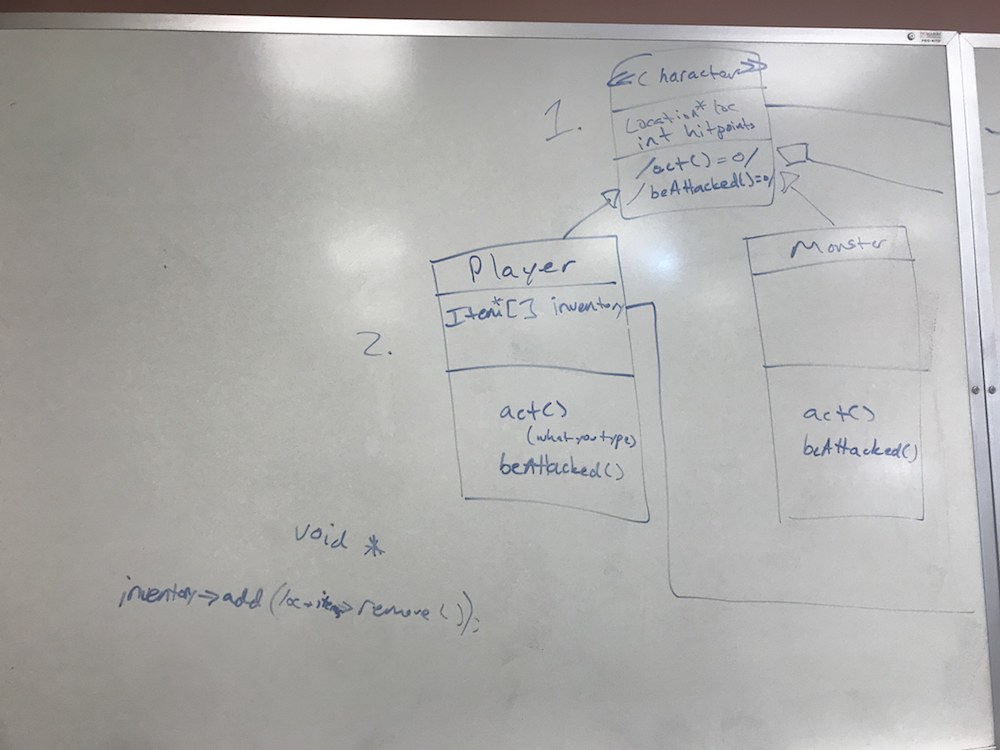 1.
<< Character >>
Location* loc
int hitpoints
/act() = 0/
/beAttacked()=0/
Player
Item*[] inventory
act()
(what you type)
beAttacked()
Monster
act()
beAttacked()
2.
void *
inventory->add(loc->items->remove());